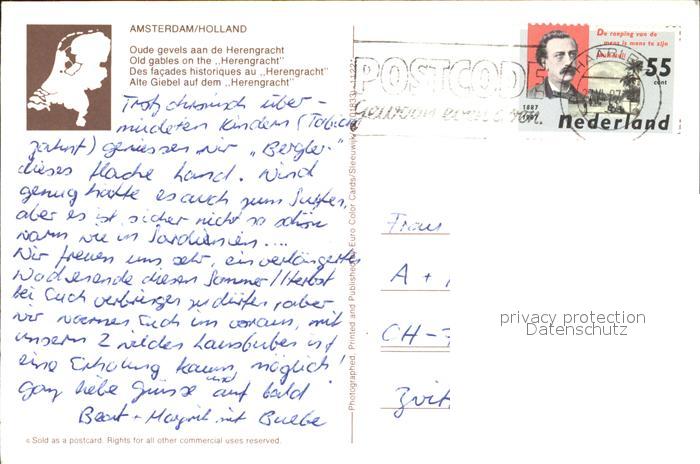 AMSTERDAM/HOLLAND
Oude gevels aan de Herengracht
Old gables on the „Herengracht"
Des façades historiques au „Herengracht"
Alte Giebel auf dem „Herengracht"
Trotz chronisch über-
müdeten Kindern (Tobias
zahnt) geniessen wir „Bergler"
dieses flache Land. Wind
genug hätte es auch zum Surfen,
aber es ist sicher nicht so schön
warm wie in Sardinien....
Wir freuen uns sehr, ein verlängertes
Wochenende diesen Sommer/Herbst
bei Euch verbringen zu dürfen, aber
wir warnen Euch im voraus, mit
unseren 2 wilden Lausbuben ist
eine Erholung kaum möglich!
ganz liebe Grüsse und auf bald
Beat + Margrit mit Buebe
© Sold as a postcard. Rights for all other commercial uses reserved.
Photographed, Printed and Published by Euro Color Cards/Sleeuwijk
POSTCODE
gewoon even doen.
De roeping van de
mens is mens te zijn
55
cent
1887
Nederland
Frau
A +
CH-
privacy protection
Datenschutz